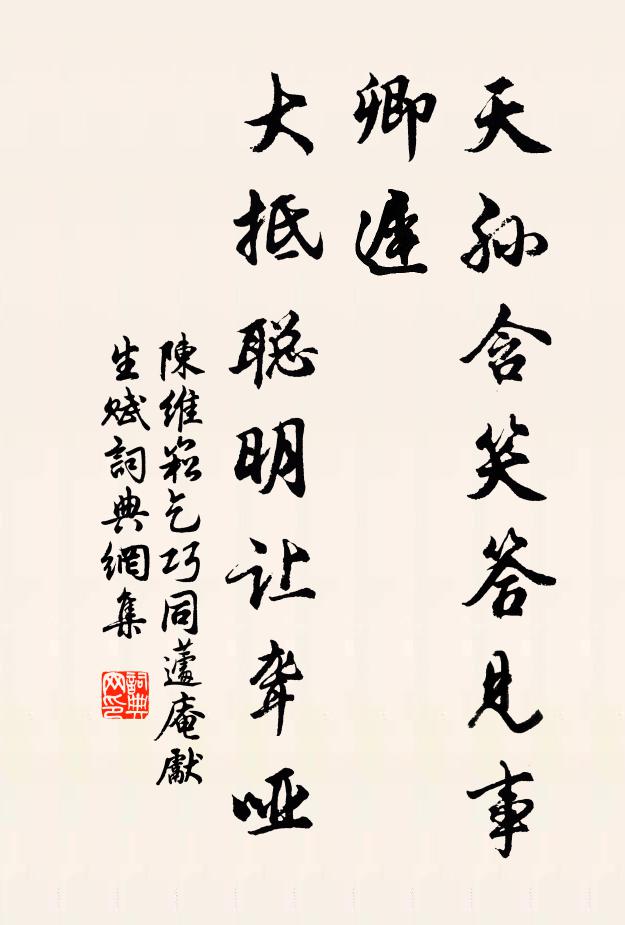 天孙含笑答见事
卿遲
大抵聪明让聋哑
陳維崧乞巧同蘧庵獻
生賦詞典網集
詞典网印